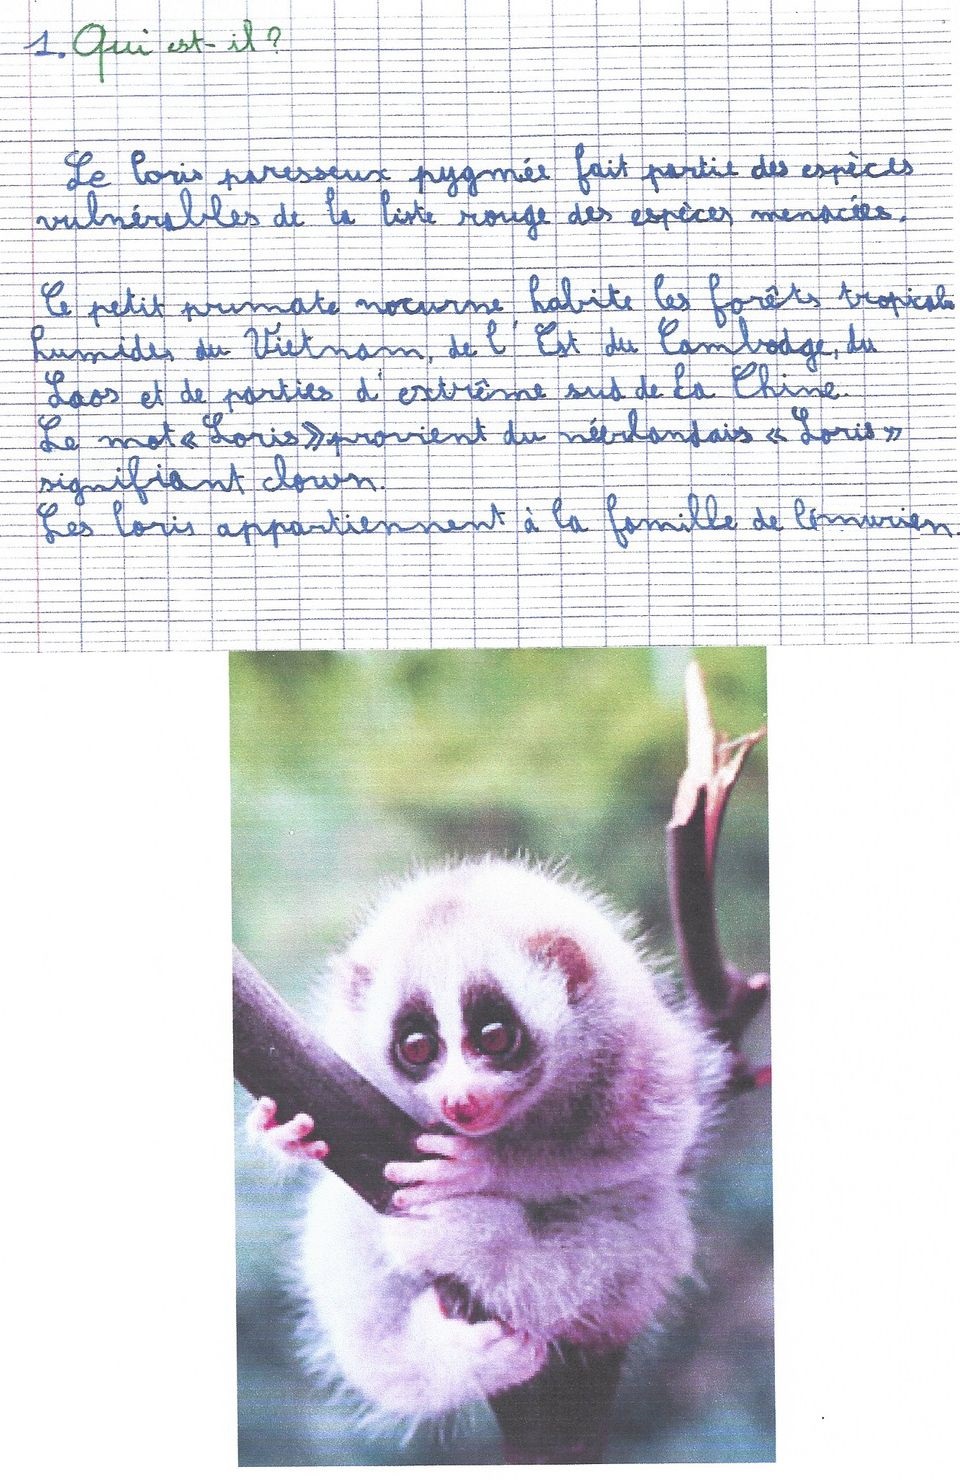 1. Qui est-il ?
Le loris paresseux pygmée fait partie des espèces
vulnérables de la liste rouge des espèces menacées.
Ce petit primate nocurne, habite les forêts tropicale
humides du Vietnam, de l'Est du Cambodge, du
Laos et de parties d'extrême sud de la Chine.
Le mot « Loris » provient du néerlandais « Loris »
signifiant clown.
Les loris appartiennent à la famille de lémurien.